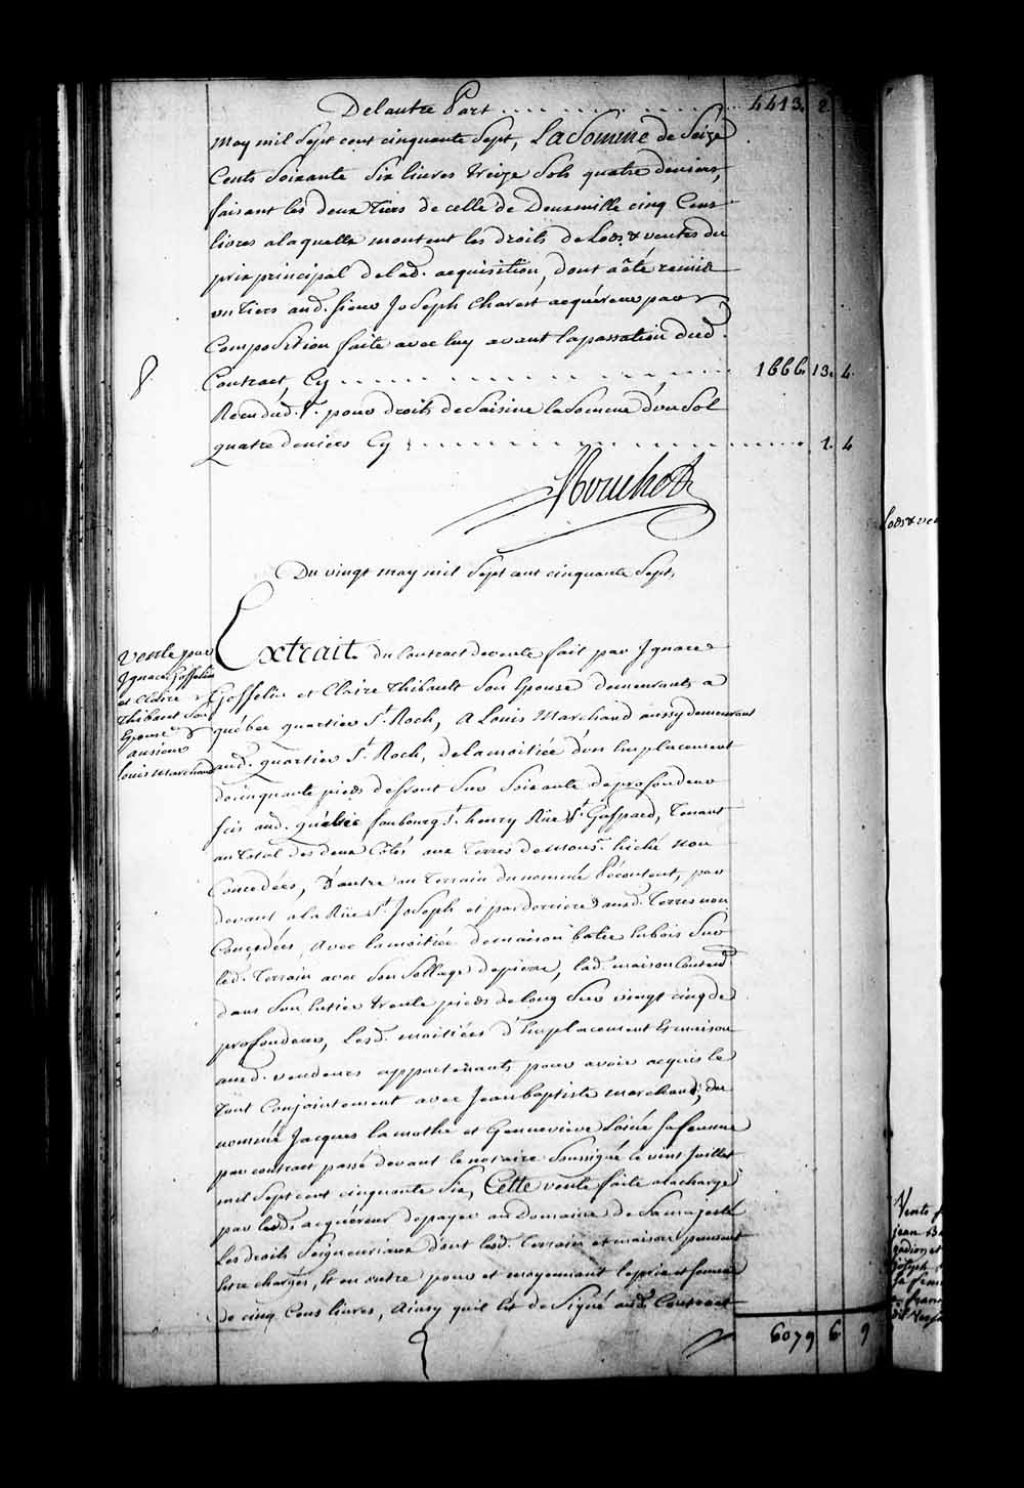 De l'autre Part . . . . . . 4413. 2.
may mil Sept cent cinquante Sept, La Somme de Seize
Cents Soixante Six livres treize Sols quatre deniers,
faisant les deux tiers de celle de Deux mille cinq Cens
livres a laquelle montent les droits de Lods & ventes du
prix principal de lad. acquisition, dont a été remis
un tiers aud. Sieur Joseph Charest acquéreur par
Composition faite avec luy avant la passation dud.
Contract, Cy . . . . . . 1666. 13. 4.
Reçu dud. Sr. pour droits de Saisine la Somme d'un Sol
quatre deniers Cy . . . . . . 1. 4
Du vingt may mil Sept cent cinquante Sept,
Extrait du Contract de vente fait par Ignace
Gosselin et Claire Thibault Son Epouse demeurants a
québec quartier St. Roch, A Louis Marchand aussy demeurant
aud. quartier St. Roch, de la moitiée d'un Emplacement
de cinquante pieds de front Sur Soixante de profondeur
sis aud. québec faubourg St. henry Rüe St. Gaspard, Tenant
au total des deux Côtés aux Terres de mons.r hiché non
Concédées, d'autre au Terrain du nommé L'écontent, par
devant a la Rüe St. Joseph et par derriere aux d. Terres non
Concédées, avec la moitiée de maison batie En bois Sur
led. Terrain avec Son Sollage de pierre, lad. maison Conten.t
dans Son Entier trente pieds de long Sur vingt cinq de
profondeur, Lesd. moitiées d'Emplacement Et maison
aux d. vendeurs appartenants pour avoir acquis le
Tout Conjointement avec Jean baptiste marchand, du
nommé Jacques la mothe et Genneviève Lainé Sa femme
par contract passé devant le notaire Soussigné le vint Juillet
mil Sept cent cinquante Six, Cette vente faite a la charge
par led. acquéreur de payer au Domaine de Sa majesté
Les droits Seigneuriaux dont lesd. terrain et maison peuvent
Etre chargés, Et en outre pour et moyennant le prix et Somme
de cinq Cens livres, Ainsy qu'il Est de Signé aud. Contract
6079 6 9
Vente par
Ignace Gosselin
et Claire
Thibaut Son
Epouse
au sieur
Louis Marchand
Lods & ven
Vente f
jean Ba
et
joseph
sa fem